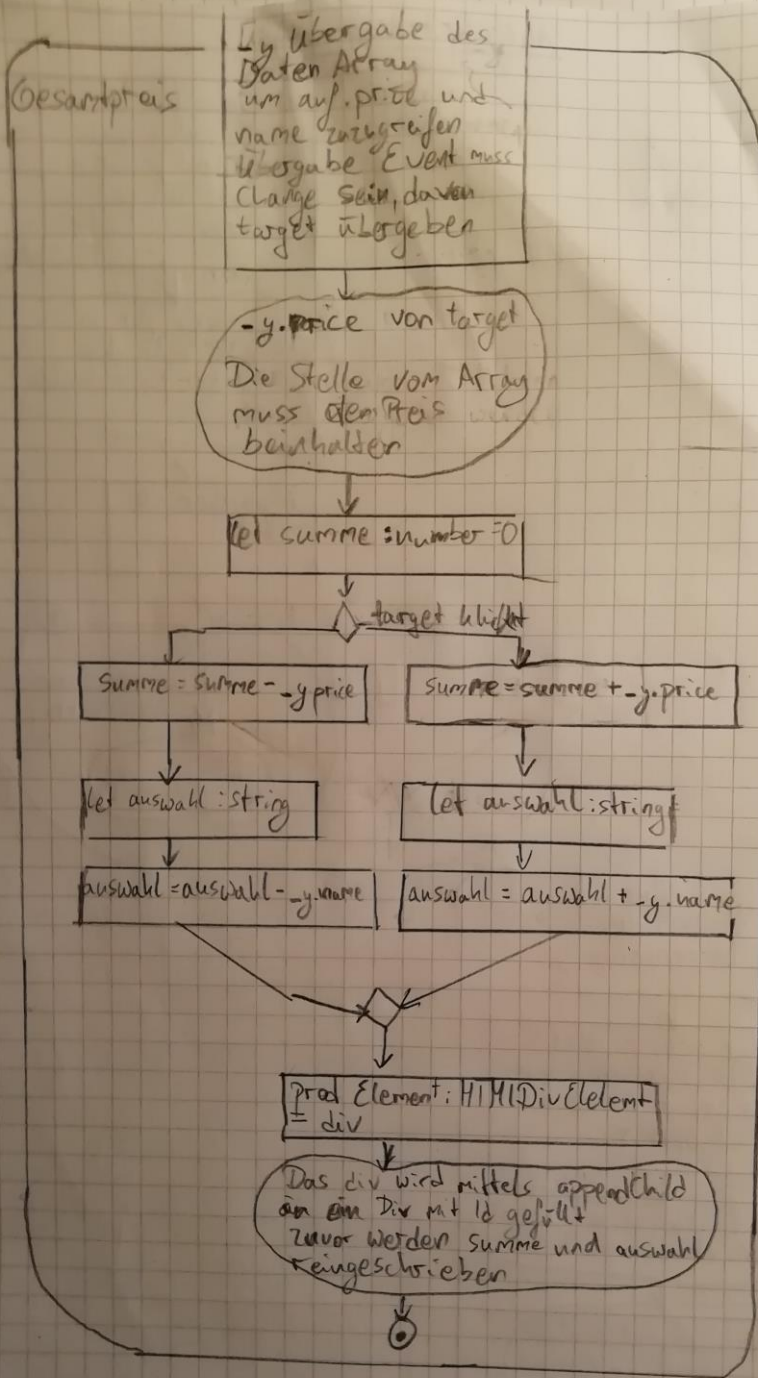 Gesamtpreis
-y Übergabe des
Daten Array
um auf .price und
name zuzugreifen
Übergabe Event muss
Change sein, davon
target übergeben
-y.price von target
Die Stelle vom Array
muss den Preis
beinhalten
let summe :number =0
target klickt
summe = summe - -y price
summe = summe + -y.price
let auswahl :string
let auswahl :string
auswahl = auswahl - -y.name
auswahl = auswahl + -y.name
prod Element: HTMLDivElelemt
= div
Das div wird mittels appendChild
an ein Div mit Id gefüllt
zuvor werden summe und auswahl
reingeschrieben